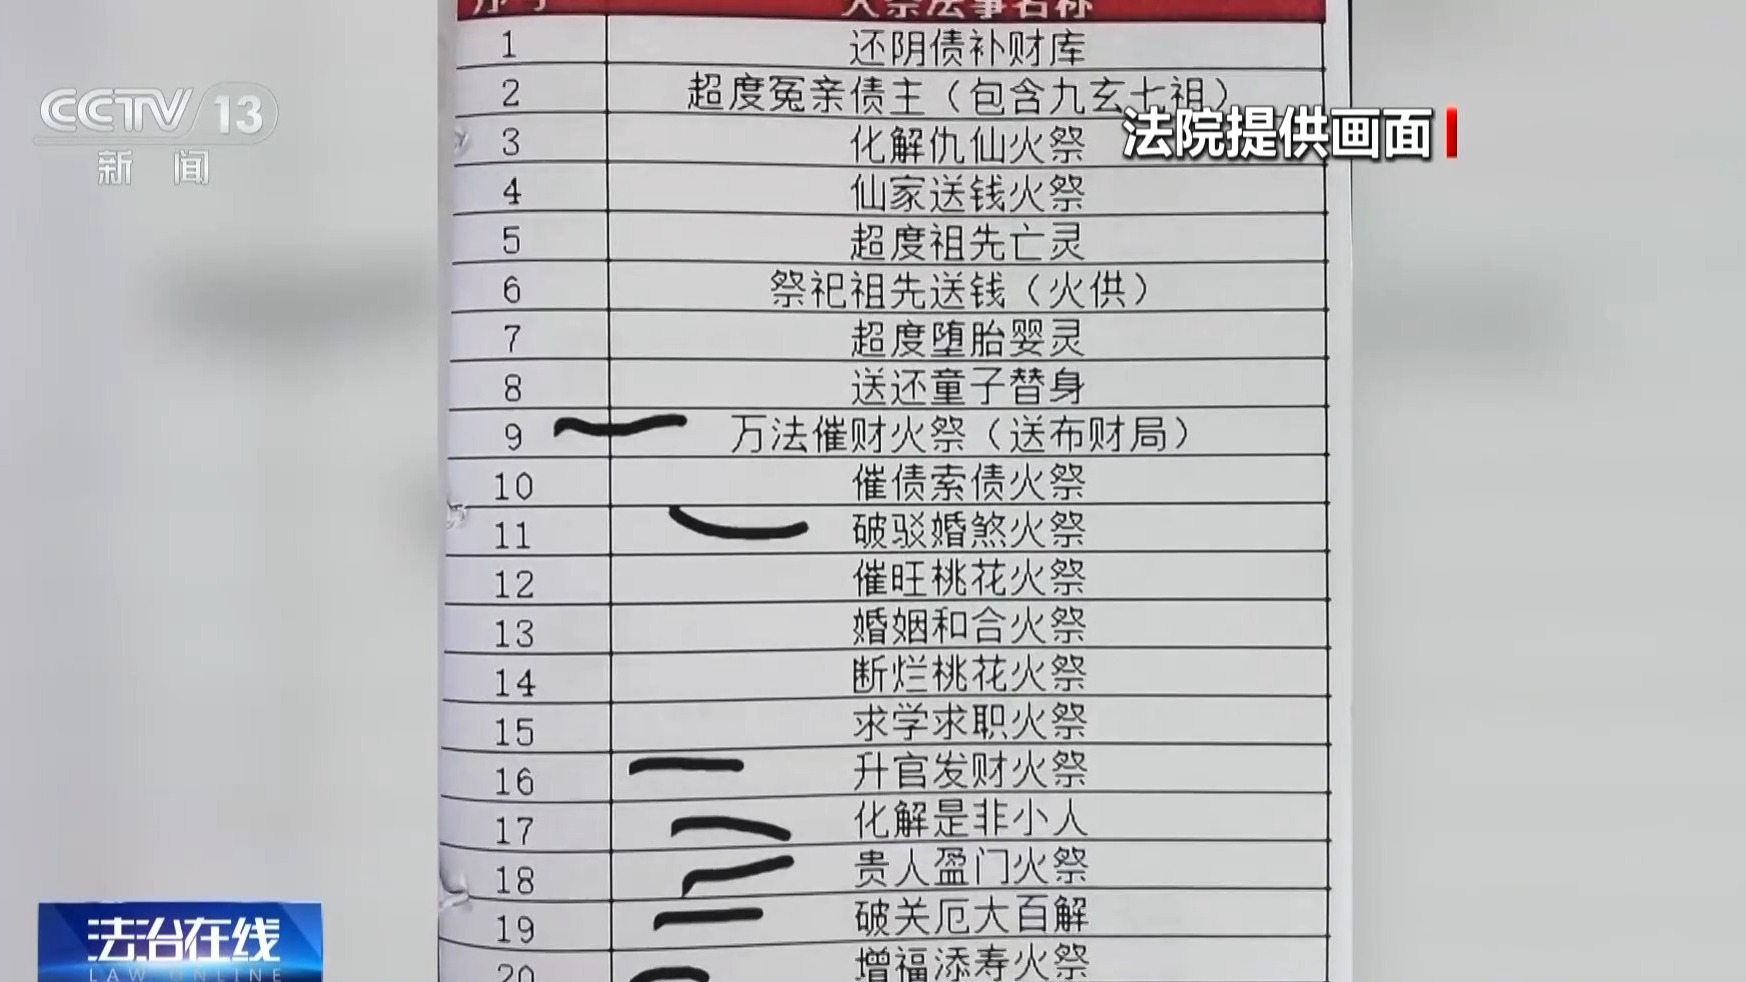 序号 火祭法事名称
1 还阴债补财库
2 超度冤亲债主（包含九玄七祖）
3 化解仇仙火祭
4 仙家送钱火祭
5 超度祖先亡灵
6 祭祀祖先送钱（火供）
7 超度堕胎婴灵
8 送还童子替身
9 万法催财火祭（送布财局）
10 催债索债火祭
11 破驳婚煞火祭
12 催旺桃花火祭
13 婚姻和合火祭
14 断烂桃花火祭
15 求学求职火祭
16 升官发财火祭
17 化解是非小人
18 贵人盈门火祭
19 破关厄大百解
20 增福添寿火祭
CCTV 13
新闻
法院提供画面
法治在线
LAW ONLINE